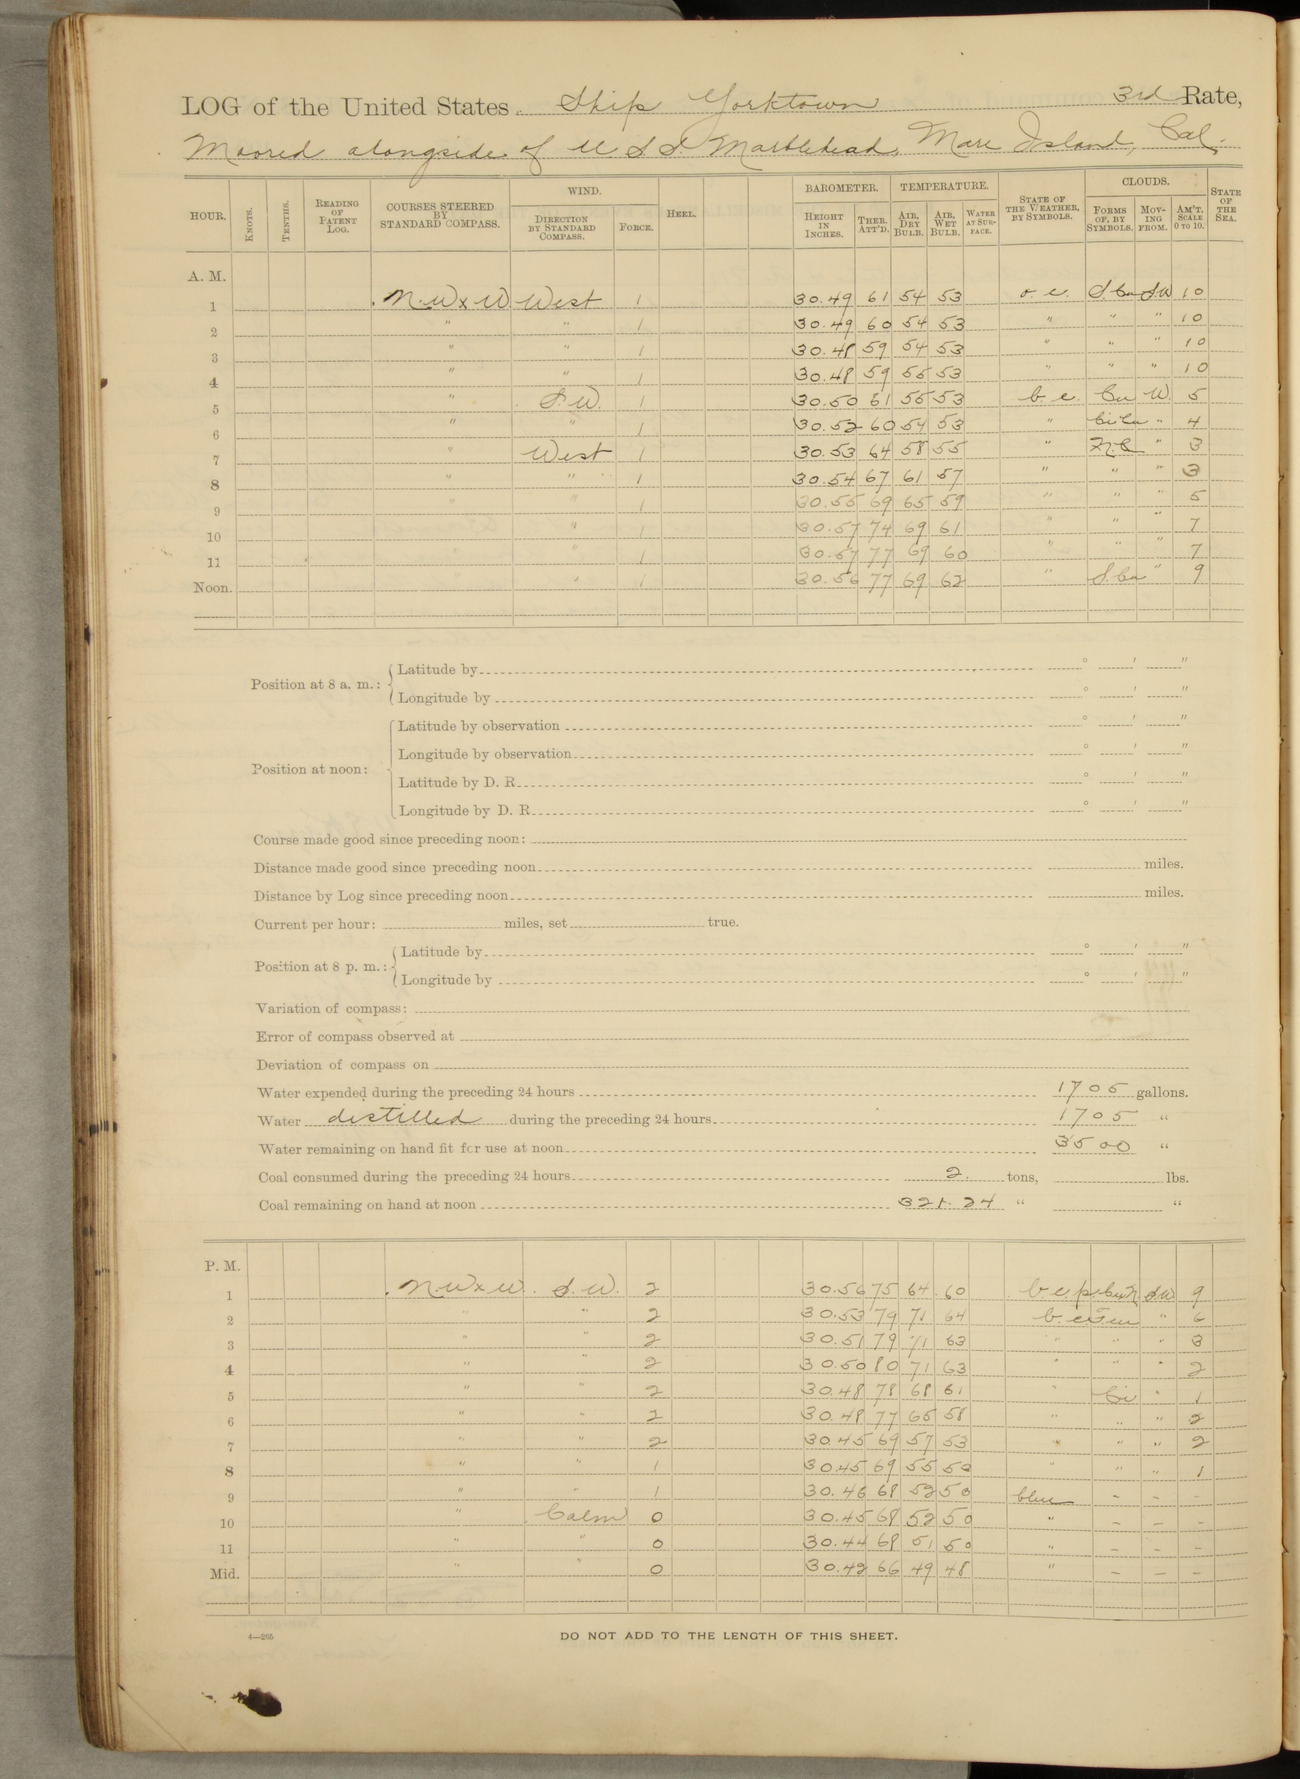 LOG of the United States Ship Yorktown 3rd Rate,
Moored alongside of U S S Marblehead, Mare Island, Cal.
HOUR. KNOTS. TENTHS. READING OF PATENT LOG. COURSES STEERED BY STANDARD COMPASS. WIND. DIRECTION BY STANDARD COMPASS. FORCE. HEEL. BAROMETER. HEIGHT IN INCHES. THER. ATT'D. TEMPERATURE. AIR, DRY BULB. AIR, WET BULB. WATER AT SURFACE. STATE OF THE WEATHER, BY SYMBOLS. CLOUDS. FORMS OF, BY SYMBOLS. MOVING FROM. AM'T. SCALE 0 TO 10. STATE OF THE SEA.
A. M.
1 N.W x W West 1 30.49 61 54 53 o. c. S.Cu S.W 10
2 " " 1 30.49 60 54 53 " " " 10
3 " " 1 30.48 59 54 53 " " " 10
4 " " 1 30.48 59 55 53 " " " 10
5 " S.W. 1 30.50 61 55 53 b. c. Cu W. 5
6 " " 1 30.52 60 54 53 " Ci Cu " 4
7 " West 1 30.53 64 58 55 " " 3
8 " " 1 30.54 67 61 57 " " " 3
9 " " 1 30.55 69 65 59 " " " 5
10 " 1 30.57 74 69 61 " " " 7
11 " 1 30.57 77 69 60 " " " 7
Noon. " 1 30.56 77 69 62 " S.Cu " 9
Position at 8 a. m.: Latitude by ° ' "
Longitude by ° ' "
Latitude by observation ° ' "
Longitude by observation ° ' "
Position at noon:
Latitude by D. R. ° ' "
Longitude by D. R. ° ' "
Course made good since preceding noon:
Distance made good since preceding noon miles.
Distance by Log since preceding noon miles.
Current per hour: miles, set true.
Position at 8 p. m.: Latitude by ° ' "
Longitude by ° ' "
Variation of compass:
Error of compass observed at
Deviation of compass on
Water expended during the preceding 24 hours 1705 gallons.
Water distilled during the preceding 24 hours 1705 "
Water remaining on hand fit for use at noon 3500 "
Coal consumed during the preceding 24 hours 2. tons, lbs.
Coal remaining on hand at noon 321.24 " "
P. M.
1 N W x W. S. W. 2 30.56 75 64 60 b c p S.W 9
2 " " 2 30.53 79 71 64 b. c. " 6
3 " " 2 30.51 79 71 63 " " " 3
4 " " 2 30.50 80 71 63 " " " 2
5 " " 2 30.48 78 68 61 " Ci " 1
6 " " 2 30.48 77 65 58 " " " 2
7 " " 2 30.45 69 57 53 " " " 2
8 " " 1 30.45 69 55 50 " " " 1
9 " " 1 30.46 68 52 50 blue - - -
10 " Calm 0 30.45 68 52 50 " - - -
11 " " 0 30.44 68 51 50 " - - -
Mid. " " 0 30.42 66 49 48 " - - -
4—265
DO NOT ADD TO THE LENGTH OF THIS SHEET.